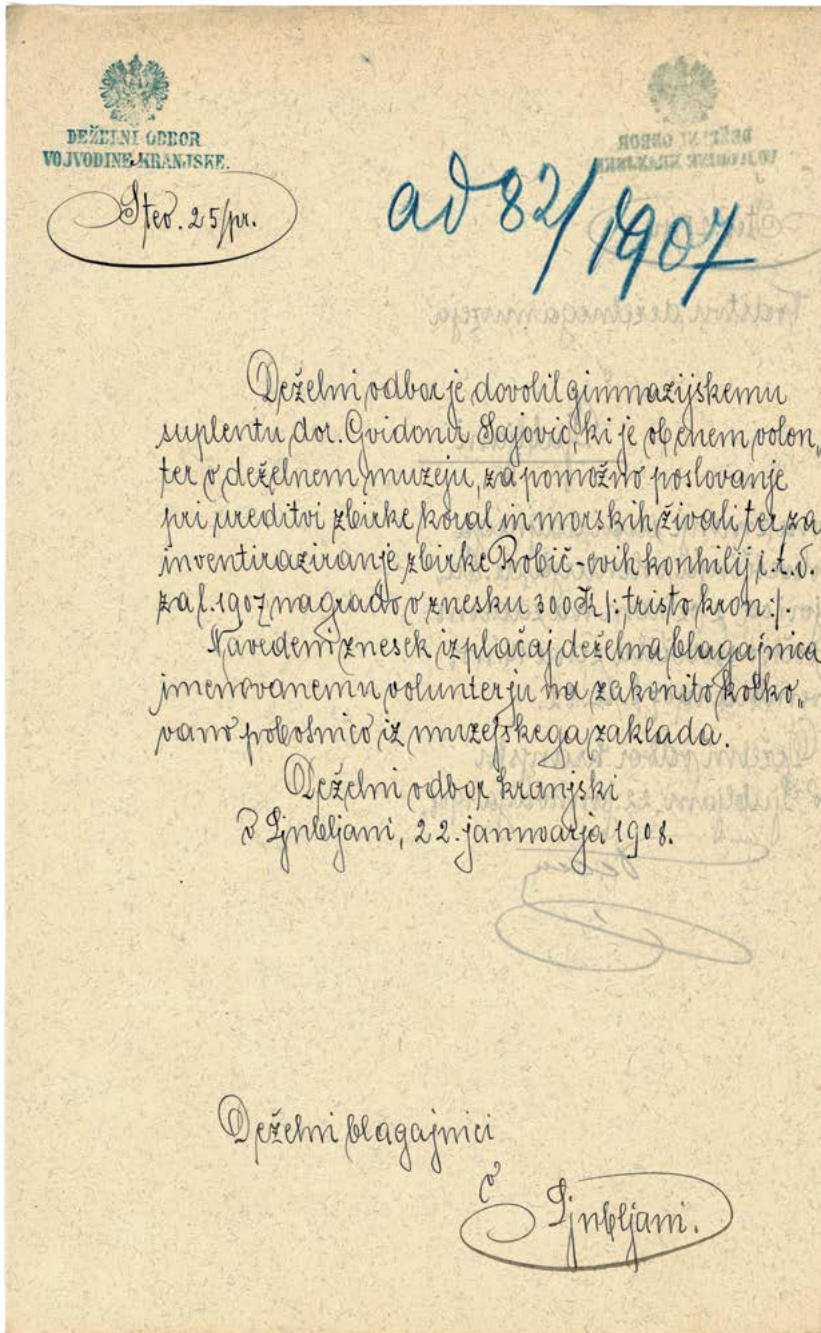 DEŽELNI ODBOR
VOJVODINE KRANJSKE.
Štev. 25/pr.
ad 82/1907
Deželni odbor je dovolil gimnazijskemu
suplentu dor. Gvidonu Sajovic, ki je obenem volon„
ter v deželnem muzeju, za pomožno poslovanje
pri ureditvi zbirke koral in morskih živali ter za
inventiraziranje zbirke Robič-evih konhilij i.t.d.
za l. 1907 nagrado v znesku 300 K |: tristo kron :|.
Navedeni znesek izplačaj deželna blagajnica
imenovanemu volunterju na zakonito kolko„
vano pobotnico iz muzejskega zaklada.
Deželni odbor kranjski
v Ljubljani, 22. januvarja 1908.
Deželni blagajnici
v
Ljubljani.